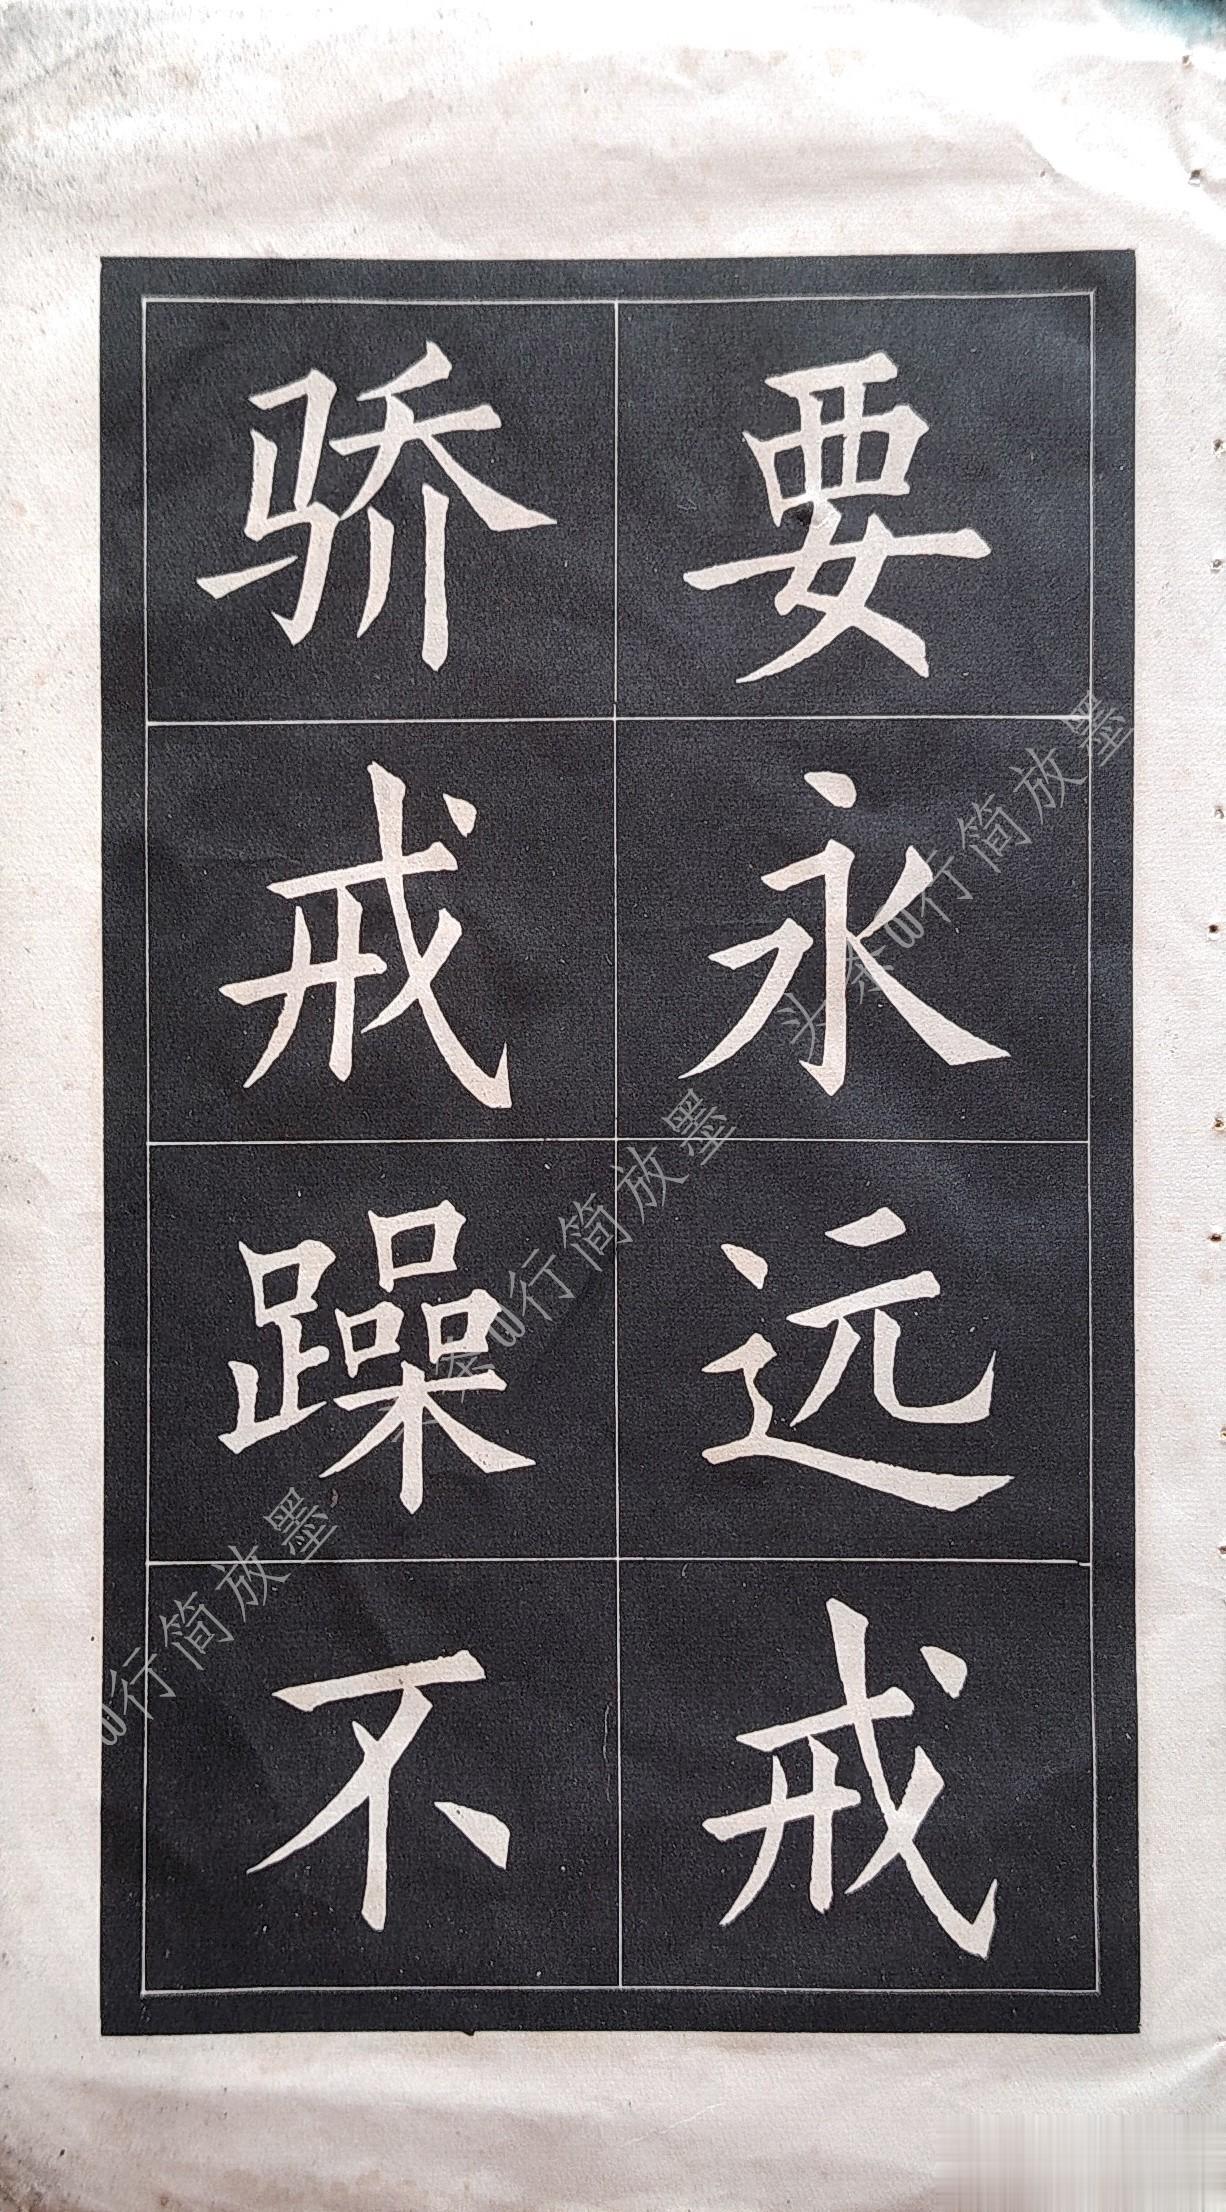 要永远戒
骄戒躁不
头条@行简放墨
头条@行简放墨
@行简放墨